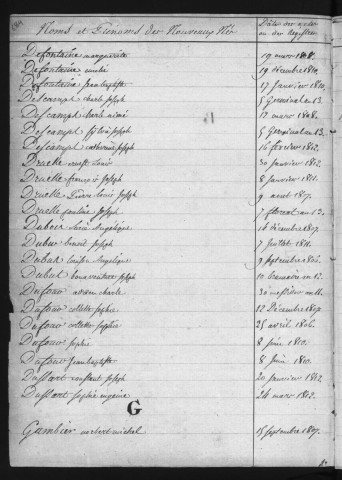 Noms et Prénoms des Nouveaux Nés
Dates des actes
ou des Registres
Defontaine marguerite 19 mars 1808.
Defontaine aimée 19 décembre 1810.
Defontaine jeanbaptiste 17 janvier 1810.
Descamps charle joseph 5 Germinal an 13.
Descamps charle aimé 17 mars 1808.
Descamps silvie joseph 5 Germinal an 13.
Descamps catherine joseph 16 février 1812.
Druelle Louis 30 janvier 1812.
Druelle françois joseph 8 janvier 1811.
Druelle Pierre Louis joseph 9 aout 1807.
Druelle pauline joseph 7 floreal an 13.
Dubois Angelique 16 décembre 1807.
Dubus benoit joseph 7 juillet 1811.
Dubus Louise Angelique 9 septembre 1806.
Dubus bonaventure joseph an 12.
Dufour adrien charle an 11.
Dufour collette sophie 12 Décembre
Dufour collette sophie 25 avril 1806.
Dufour sophie 8 juin 1810.
Dufour jeanbaptiste 8 juin 1810.
Dussart constant joseph 20 janvier 1812.
Dussart sophie eugenie 24 mars 1812.
G
Gambier norbert michel 15 septembre 1807.